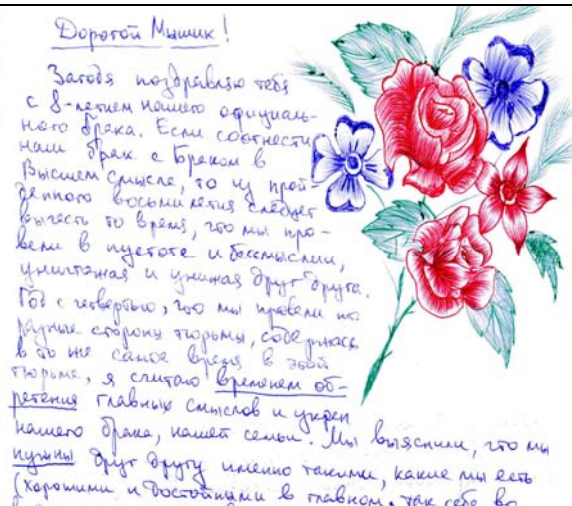 Дорогой Мышик!
Загодя поздравляю тебя
с 8-летием нашего официаль-
ного брака. Если соотнести
наш брак с Браком в
Высшем смысле, то из прой-
денного восьмилетия следует
вычесть то время, что мы про-
вели в пустоте и бессмыслии,
уничтожая и унижая друг друга.
Год с четвертью, что мы провели по
разные стороны тюрьмы, содержась
в то же самое время в этой
тюрьме, я считаю временем об-
ретения главных смыслов и
нашего брака, нашей семьи. Мы выяснили, что мы
нужны друг другу именно такими, какие мы есть
(хорошими и достойными в главном, так себе во